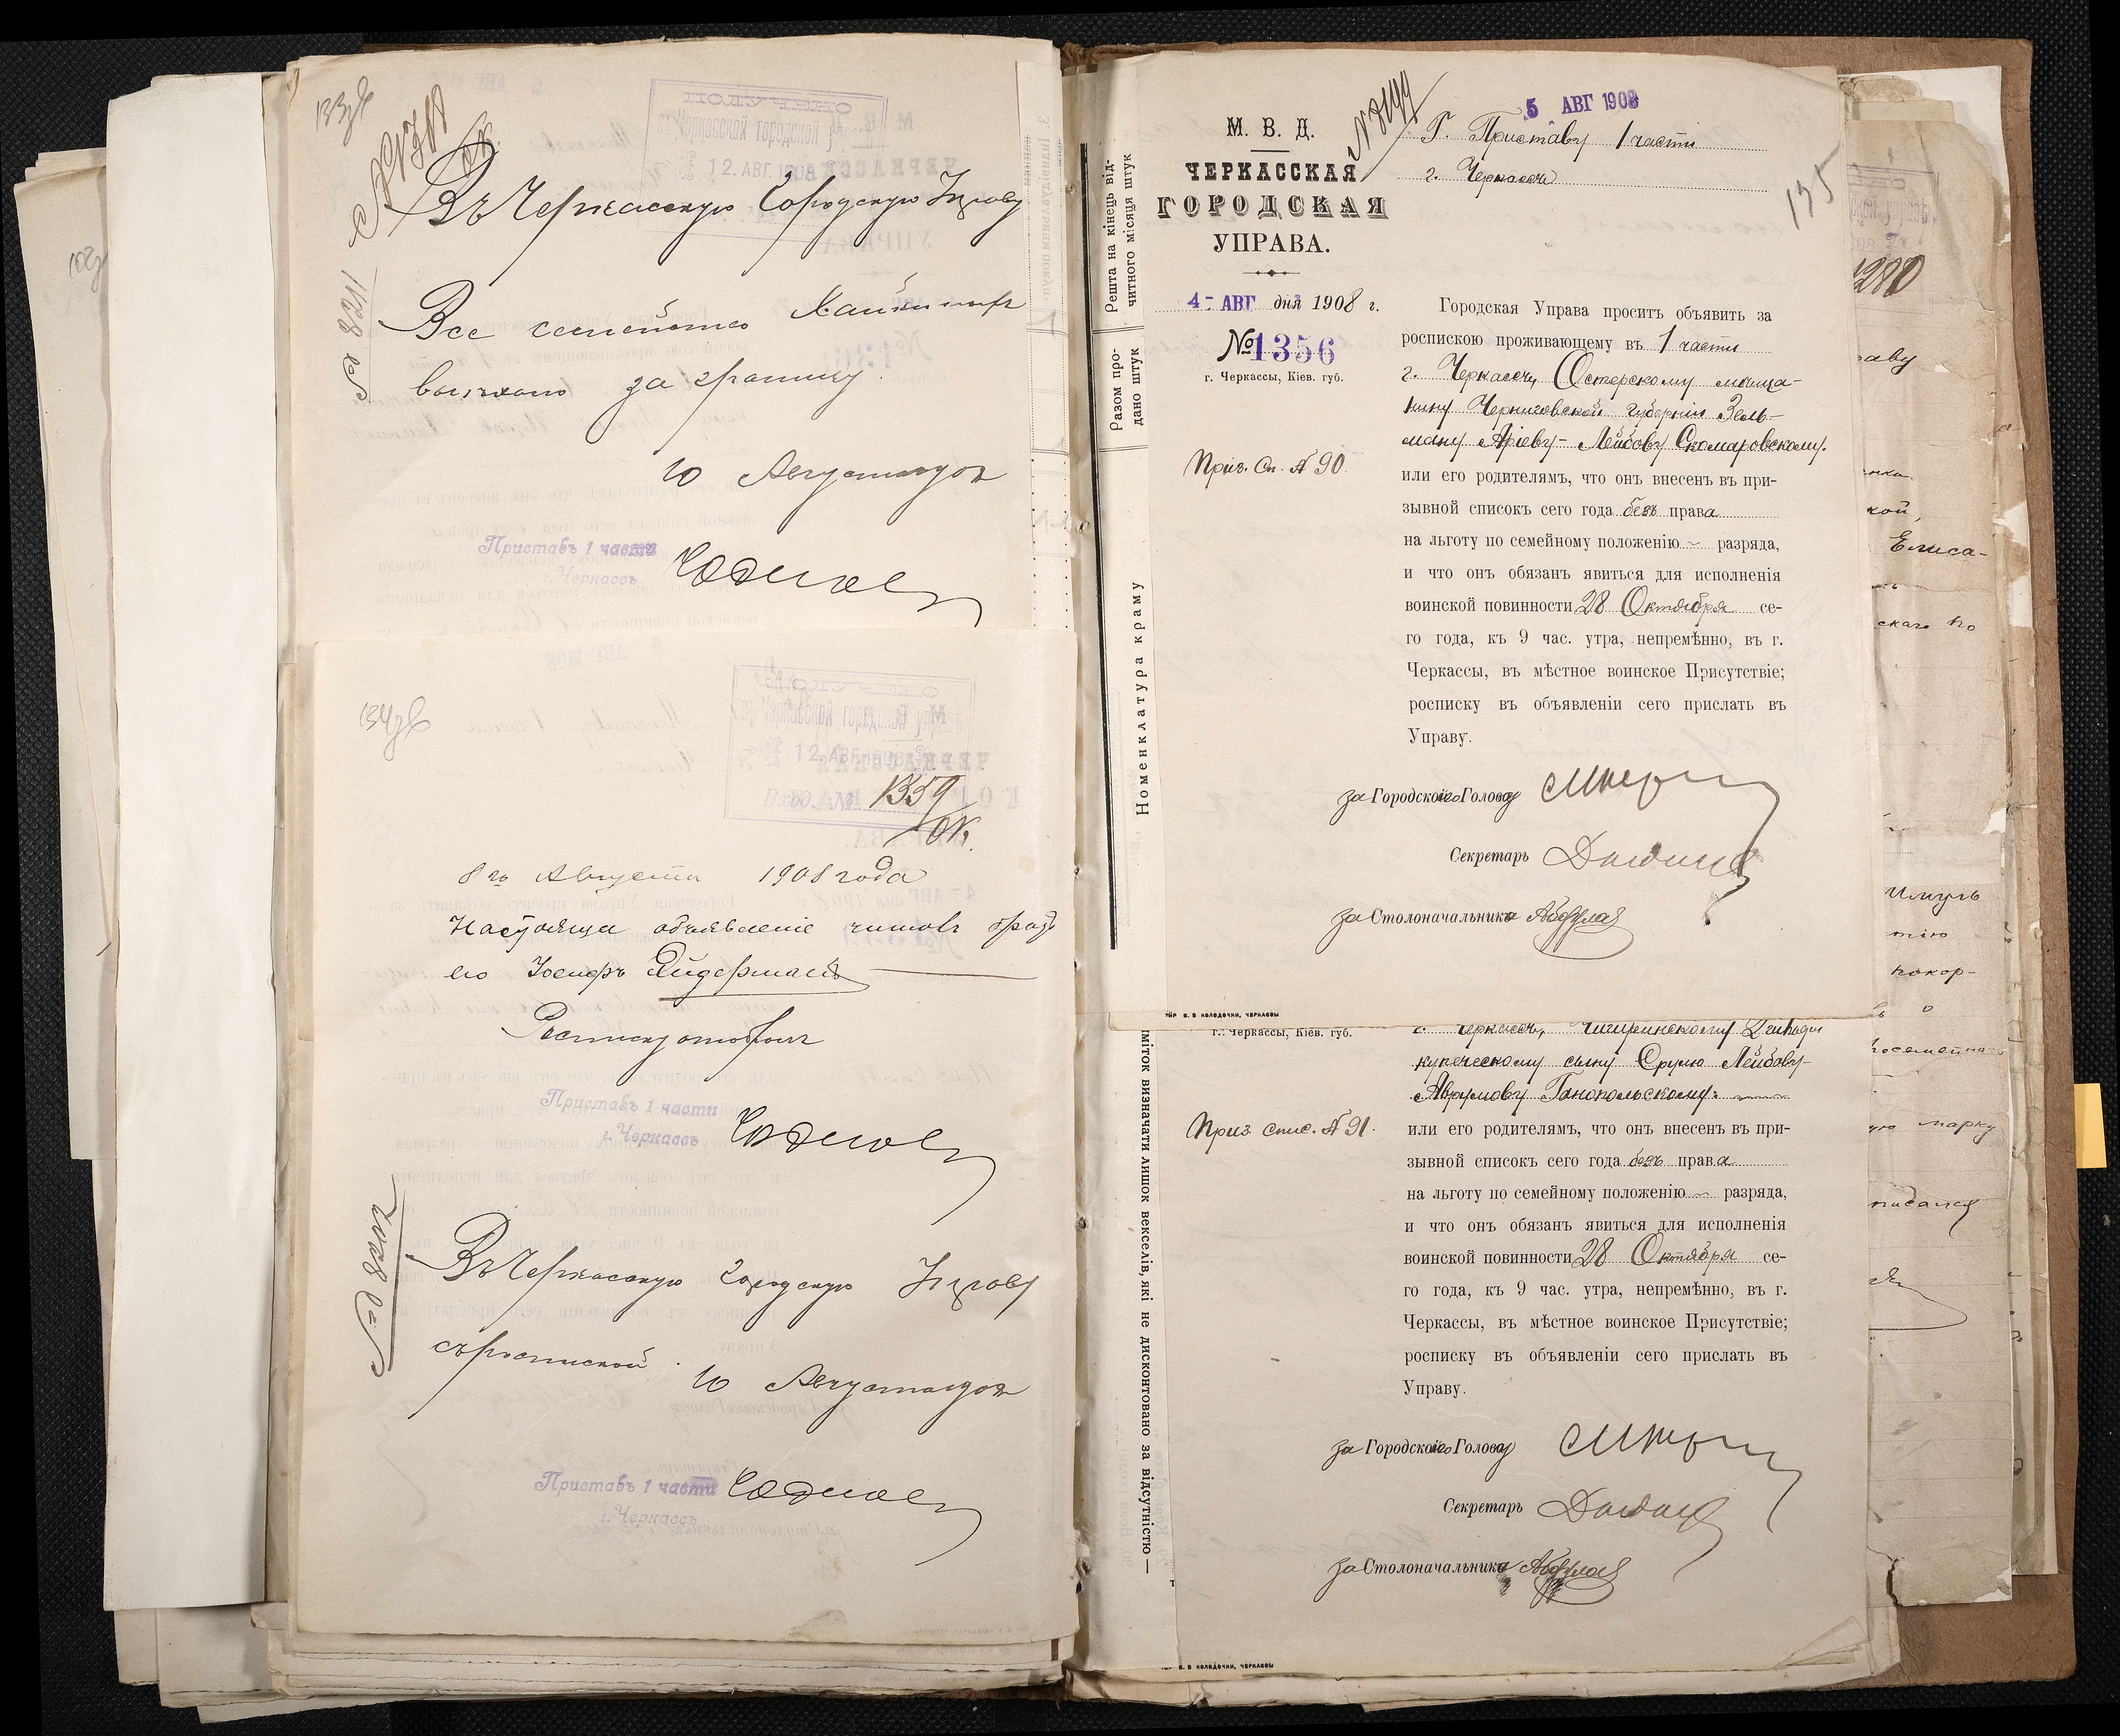 133об
№ 8211
ПОЛУЧЕНО
Черкасской городской
12. АВГ. 1908
Въ Черкасскую Городскую Управу
Все семейство
выехало за границу
10 Августа 1908
Приставъ 1 части
г. Черкассъ
134об
ПОЛУЧЕНО
Черкасской городской управѣ
12. АВГ. 1908
Вход. №. 1359
8го Августа 1908 года
Настояща объявленіе читалъ братъ
его Іосифъ
Росписку отобралъ
Приставъ 1 части
г. Черкассъ
№ 8202
Въ Черкасскую Городскую Управу
съ роспиской
10 Августа 1908
Приставъ 1 части
г. Черкассъ
Решта на кінець від-
читного місяця штук
Разом про-
дано штук
Номенклатура краму
М. В. Д.
ЧЕРКАССКАЯ
ГОРОДСКАЯ
УПРАВА.
5 АВГ 1908
Г. Приставу 1 части
г. Черкассъ
135
4- АВГ дня 1908 г.
№ 1356
г. Черкассы, Кіев. губ.
Приз. Сп. № 90.
Городская Управа проситъ объявить за
роспискою проживающему въ 1 части
г. Черкассъ, Остерскому мѣща-
нину Черниговской губерніи Зель-
ману Аріеву-Лейбову Скомаровскому.
или его родителямъ, что онъ внесенъ въ при-
зывной списокъ сего года безъ права
на льготу по семейному положенію ~ разряда,
и что онъ обязанъ явиться для исполненія
воинской повинности 28 Октября се-
го года, къ 9 час. утра, непремѣнно, въ г.
Черкассы, въ мѣстное воинское Присутствіе;
росписку въ объявленіи сего прислать въ
Управу.
за Городского Голову
Секретарь
за Столоначальника
ТИР В. В КОЛОДОЧКИ, ЧЕРКАССЫ
імiток визначати лишок векселів, які не дисконтовано за відсутністю—
г. Черкассы, Кіев. губ.
Приз. спис. № 91.
г. Черкассъ, Чигиринскому
купеческому сыну Срулю Лейбову-
Аврумову Ганопольскому.
или его родителямъ, что онъ внесенъ въ при-
зывной списокъ сего года безъ права
на льготу по семейному положенію ~ разряда,
и что онъ обязанъ явиться для исполненія
воинской повинности 28 Октября се-
го года, къ 9 час. утра, непремѣнно, въ г.
Черкассы, въ мѣстное воинское Присутствіе;
росписку въ объявленіи сего прислать въ
Управу.
за Городского Голову
Секретарь
за Столоначальника
ТИР В. В КОЛОДОЧКИ, ЧЕРКАССЫ
Елиса-
покор-
марку